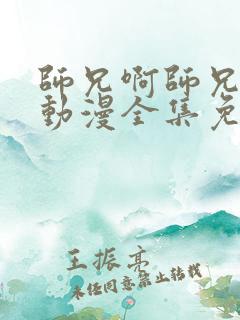 師兄啊師兄
動漫全集免
王振亮
未经同意禁止转载